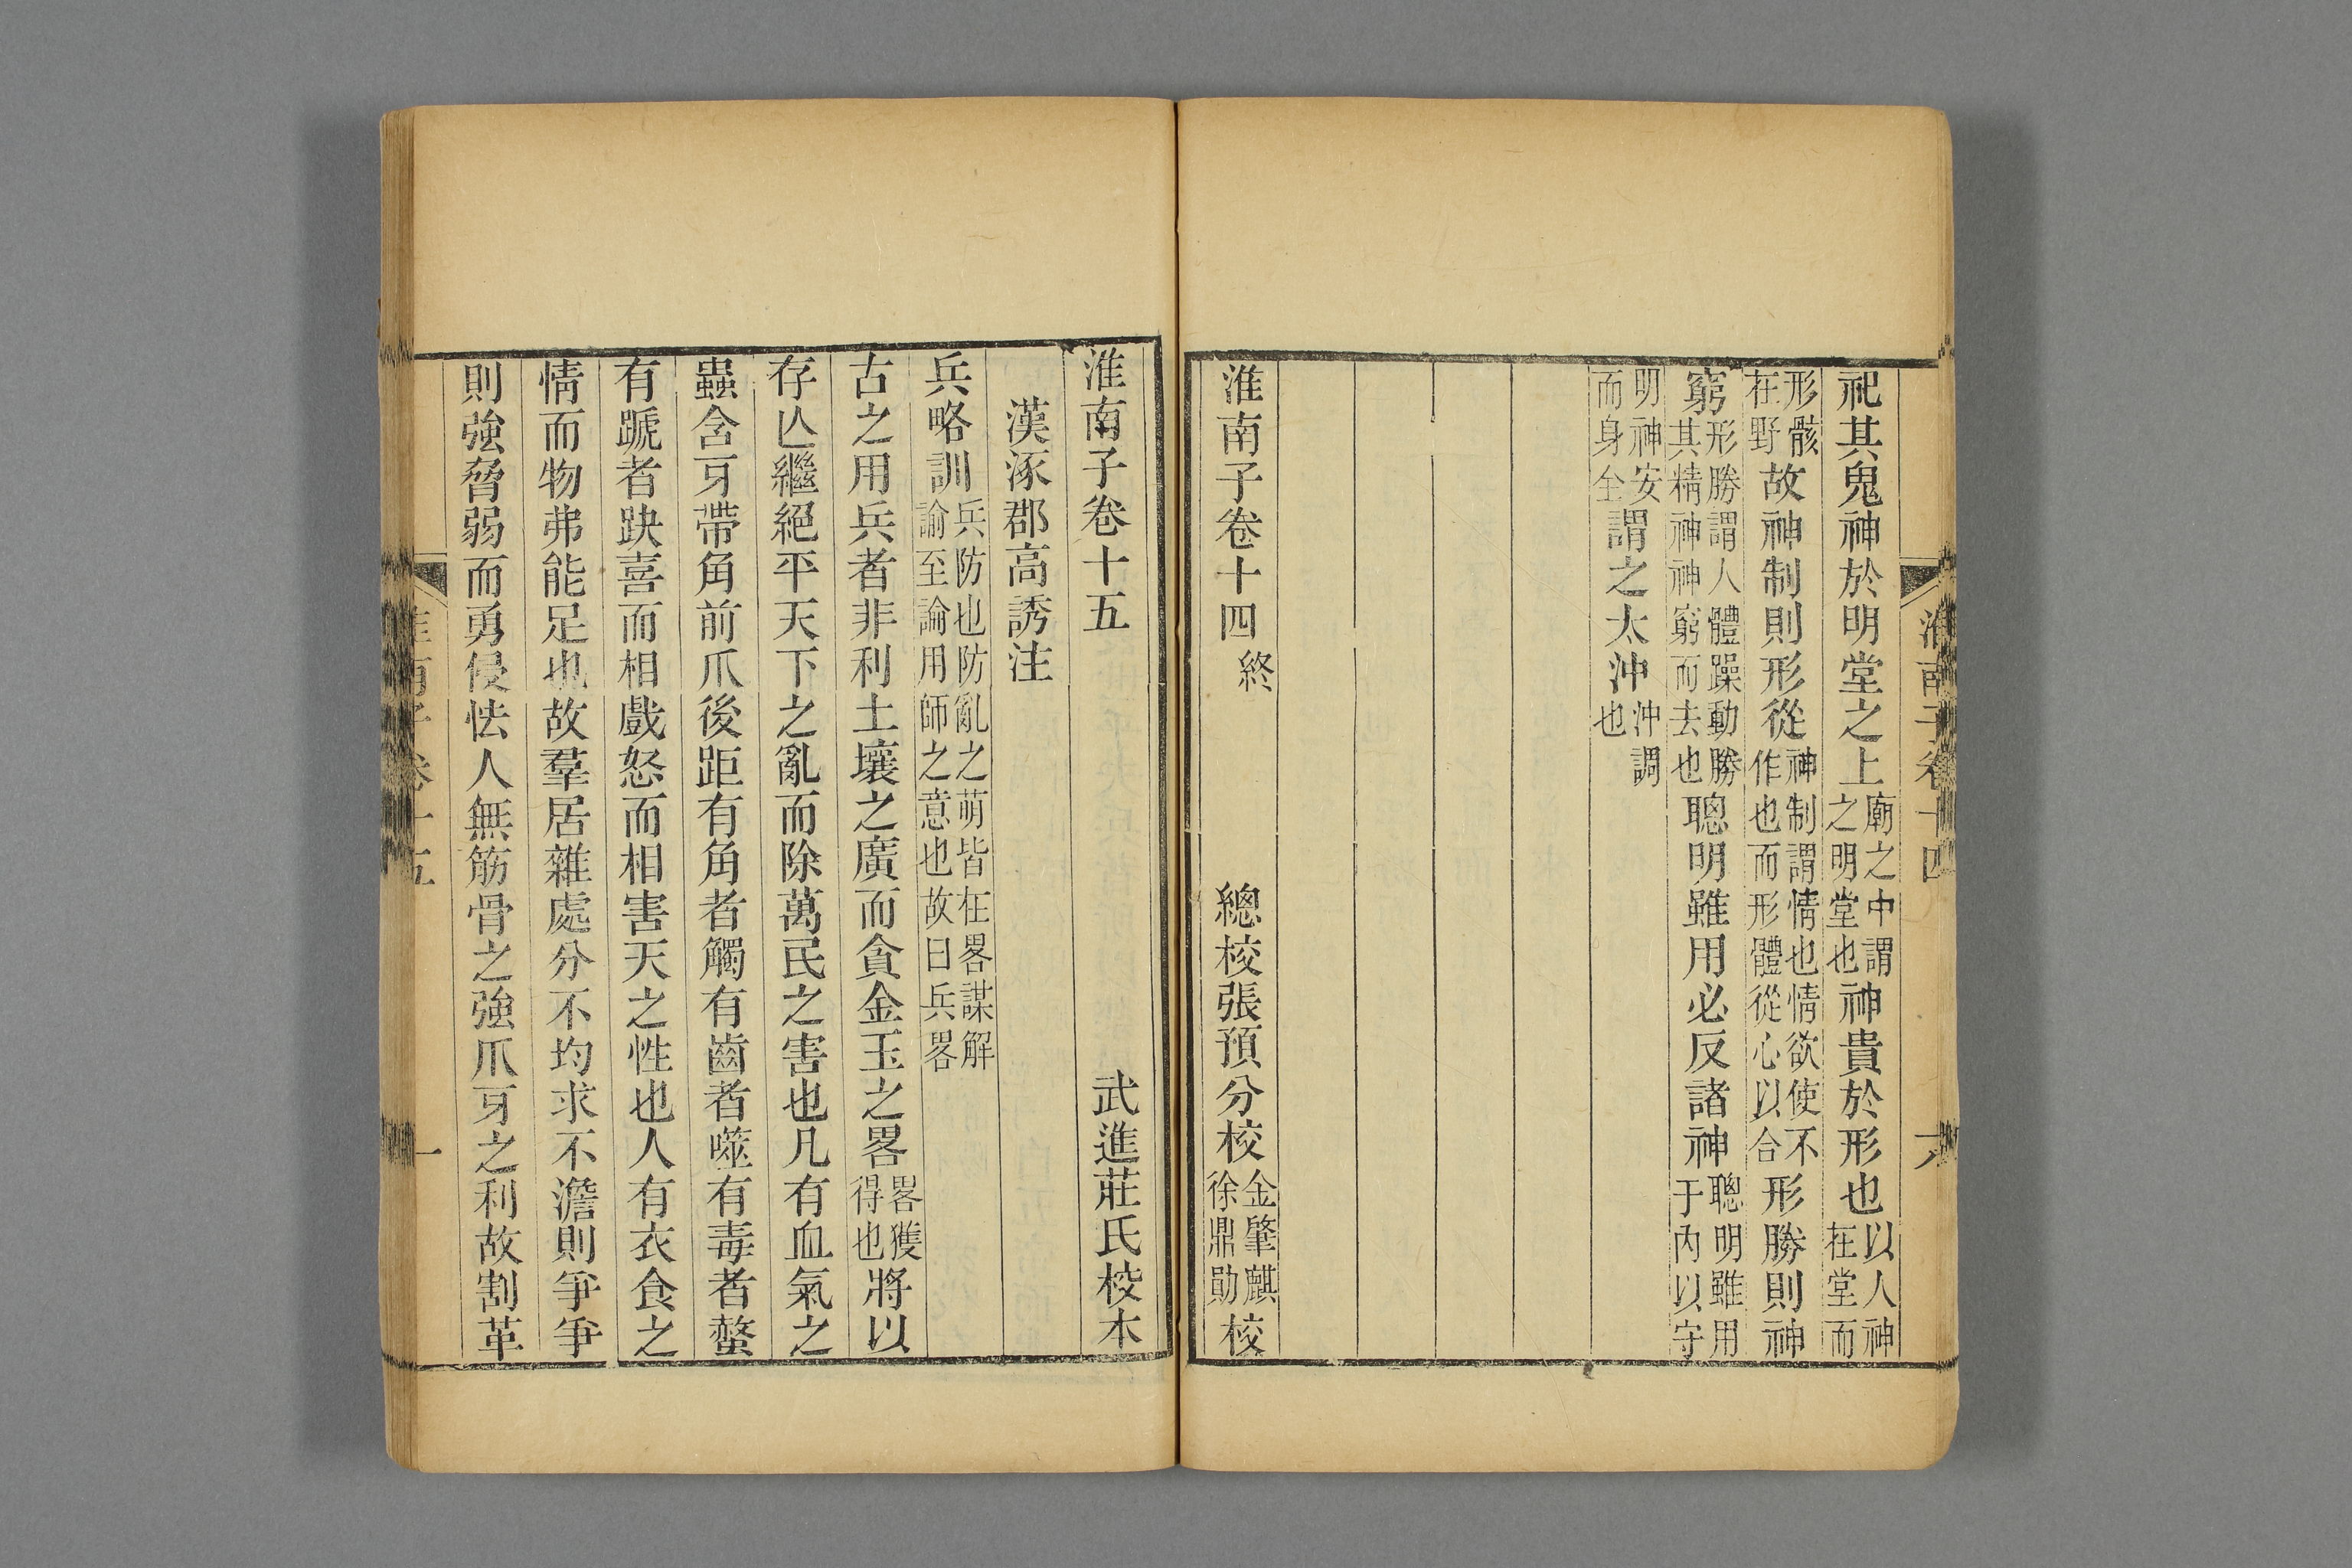 祀其鬼神於明堂之上廟之中謂之明堂也神貴於形也以人神在堂而
形骸在野故神制則形從神制謂情也情欲使不作也而形體從心以合形勝則神
窮形勝謂人體躁動勝其精神神窮而去也聰明雖用必反諸神聰明雖用于內以守
明神安而身全謂之太沖沖調也
淮南子卷十四終 總校張預分校金肇麒徐鼎勛校
淮南子卷十四 六
淮南子卷十五 武進莊氏校本
漢涿郡高誘注
兵略訓兵防也防亂之萌皆在畧謀解諭至論用師之意也故曰兵畧
古之用兵者非利土壤之廣而貪金玉之畧畧獲得也將以
存亾繼絕平天下之亂而除萬民之害也凡有血氣之
蟲含牙帶角前爪後距有角者觸有齒者噬有毒者螫
有蹏者趹喜而相戲怒而相害天之性也人有衣食之
情而物弗能足也故羣居雜處分不均求不澹則爭爭
則強脅弱而勇侵怯人無筋骨之強爪牙之利故割革
淮南子卷十五 一